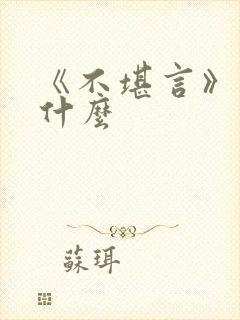 《不堪言》
什麼
蘇珥